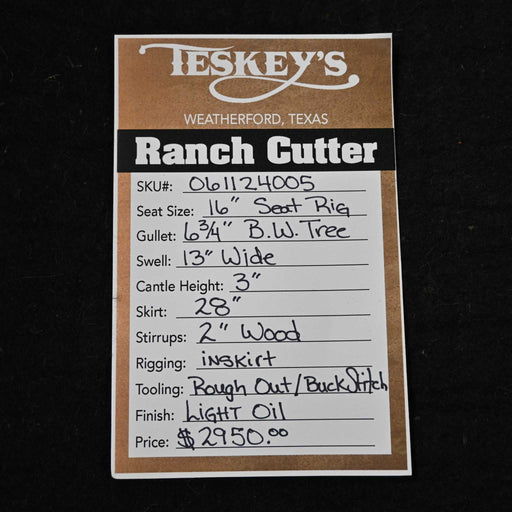 TESKEY'S
WEATHERFORD, TEXAS
Ranch Cutter
SKU#: 061124005
Seat Size: 16" Seat Rig
Gullet: 6 3/4" B.W. Tree
Swell: 13" Wide
Cantle Height: 3"
Skirt: 28"
Stirrups: 2" Wood
Rigging: inskirt
Tooling: Rough Out/BuckStitch
Finish: LIGHT Oil
Price: $2950.00